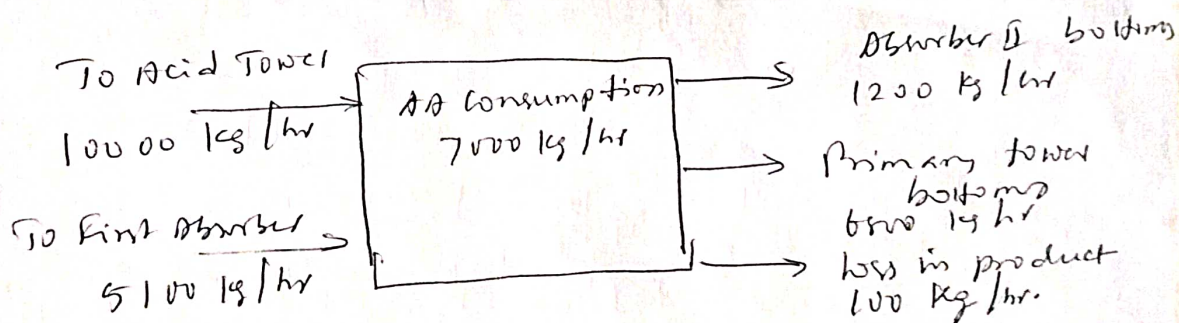 To Acid Tower
10000 kg/hr
To First Absorber
5100 kg/hr
AA Consumption
7000 kg/hr
Absorber II bottoms
1200 kg/hr
Primary tower
bottoms
6800 kg hr
loss in product
100 kg/hr.